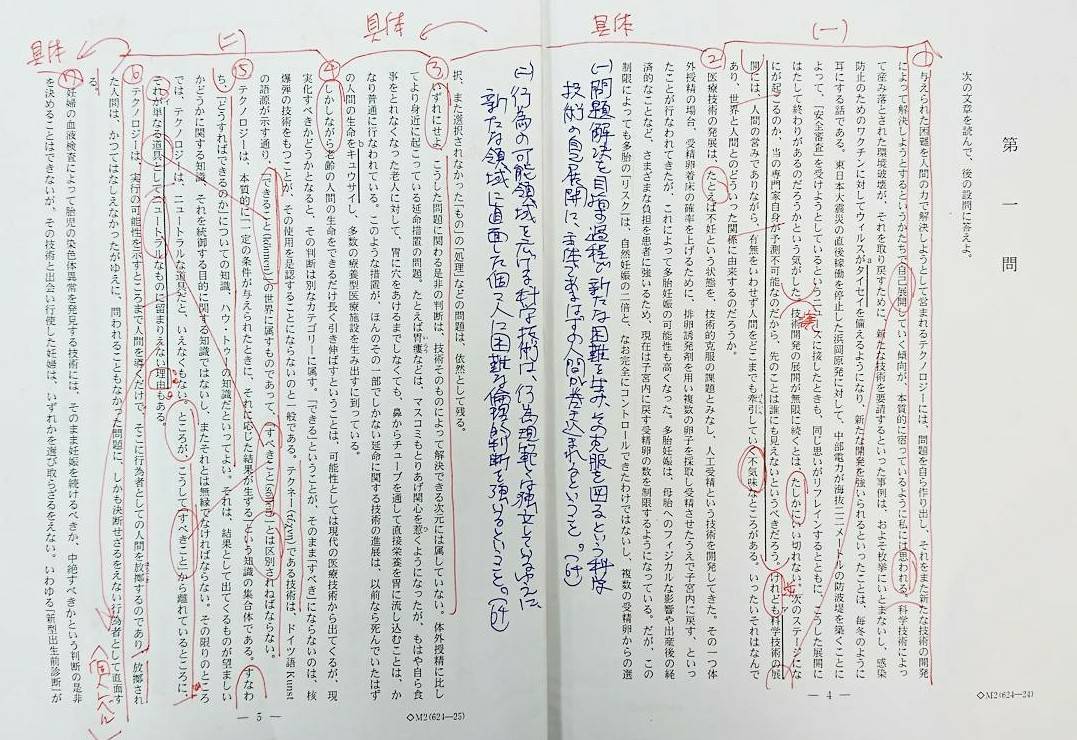 第一問
次の文章を読んで、後の設問に答えよ。
(一)
1
与えられた困難を人間の力で解決しようとして営まれるテクノロジーには、問題を自ら作り出し、それをまた新たな技術の開発
によって解決しようとするというかたちで自己展開していく傾向が、本質的に宿っているように私には思われる。科学技術によっ
て産み落とされた環境破壊が、それを取り戻すために、新たな技術を要請するといった事例は、およそ枚挙にいとまないし、感染
防止のためのワクチンに対してウィルスがタイセイを備えるようになり、新たな開発を強いられるといったことは、毎冬のように
a
耳にする話である。東日本大震災の直後稼働を停止した浜岡原発に対して、中部電力が海抜二二メートルの防波堤を築くことに
よって、「安全審査」を受けようとしているというニュースに接したときも、同じ思いがリフレインするとともに、こうした展開に
はたして終わりがあるのだろうかという気がした。技術開発の展開が無限に続くとは、たしかにいい切れない。次のステージにな
にが起こるのか、当の専門家自身が予測不可能なのだから、先のことは誰にも見えないというべきだろう。けれども科学技術の展
ア
開には、人間の営みでありながら、有無をいわせず人間をどこまでも牽引していく不気味なところがある。いったいそれはなんで
けんいん
あり、世界と人間とのどういった関係に由来するのだろうか。
具体
2
医療技術の発展は、たとえば不妊という状態を、技術的克服の課題とみなし、人工受精という技術を開発してきた。その一つ体
外授精の場合、受精卵着床の確率を上げるために、排卵誘発剤を用い複数の卵子を採取し受精させたうえで子宮内に戻す、といっ
たことが行なわれてきたが、これによって多胎妊娠の可能性も高くなった。多胎妊娠は、母胎へのフィジカルな影響や出産後の経
済的なことなど、さまざまな負担を患者に強いるため、現在は子宮内に戻す受精卵の数を制限するようになっている。だが、この
制限によっても多胎の「リスク」は、自然妊娠の二倍と、なお完全にコントロールできたわけではないし、複数の受精卵からの選
(一)問題解決を目指す過程が新たな困難を生み、その克服を図るという科学
技術の自己展開に、主体であるはずの人間が巻き込まれるということ。(64)
— 4 —
◇M2(624—24)
(二)行為の可能領域を広げる科学技術は、行為規範とは独立しているゆえに
新たな領域に直面した個々人に困難な倫理的判断を強いるということ。(64)
択、また選択されなかった「もの」の「処理」などの問題は、依然として残る。
具体
3
いずれにせよ、こうした問題に関わる是非の判断は、技術そのものによって解決できる次元には属していない。体外授精に比し
てより身近に起こっている延命措置の問題。たとえば胃瘻などは、マスコミもとりあげ関心を惹くようになったが、もはや自ら食
いろう
ひ
事をとれなくなった老人に対して、胃に穴をあけるまでしなくても、鼻からチューブを通して直接栄養を胃に流し込むことは、か
なり普通に行なわれている。このような措置が、ほんのその一部でしかない延命に関する技術の進展は、以前なら死んでいたはず
の人間の生命をキュウサイし、多数の療養型医療施設を生み出すに到っている。
b
(二)
4
しかしながら老齢の人間の生命をできるだけ長く引き伸ばすということは、可能性としては現代の医療技術から出てくるが、現
実化すべきかどうかとなると、その判断は別なカテゴリーに属す。「できる」ということが、そのまま「すべき」にならないのは、核
爆弾の技術をもつことが、その使用を是認することにならないのと一般である。テクネー(τέχνη)である技術は、ドイツ語 Kunst
の語源が示す通り、「できること(können)」の世界に属すものであって、「すべきこと(sollen)」とは区別されねばならない。
5
テクノロジーは、本質的に「一定の条件が与えられたときに、それに応じた結果が生ずる」という知識の集合体である。すなわ
ち、「どうすればできるのか」についての知識、ハウ・トゥーの知識だといってよい。それは、結果として出てくるものが望ましい
かどうかに関する知識、それを統御する目的に関する知識ではないし、またそれとは無縁でなければならない。その限りのところ
では、テクノロジーは、ニュートラルな道具だと、いえなくもない。ところが、こうして「すべきこと」から離れているところに、
それが単なる道具としてニュートラルなものに留まりえない理由もある。
6
テクノロジーは、実行の可能性を示すところまで人間を導くだけで、そこに行為者としての人間を放擲するのであり、放擲され
た人間は、かつてはなしえなかったがゆえに、問われることもなかった問題に、しかも決断せざるをえない行為者として直面す
る。
個人レベル
具体
7
妊婦の血液検査によって胎児の染色体異常を発見する技術には、そのまま妊娠を続けるべきか、中絶すべきかという判断の是非
を決めることはできないが、その技術と出会い行使した妊婦は、いずれかを選び取らざるをえない。いわゆる「新型出生前診断」が
— 5 —
◇M2(624—25)